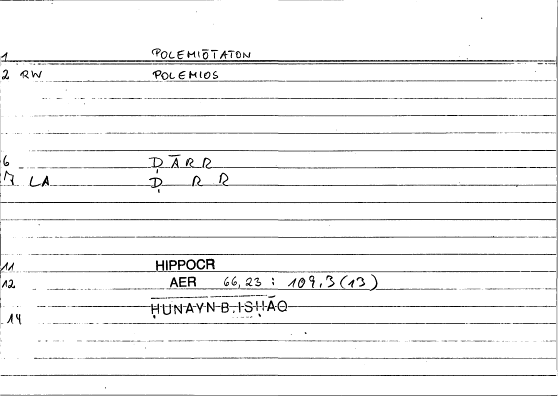 1 POLEMIŌTATON
2 RW POLEMIOS
6 ḌĀRR
7 LA Ḍ R R
11 HIPPOCR
12 AER 66,23 : 109,3(13)
ḤUNAYN B. ISḤĀQ
14